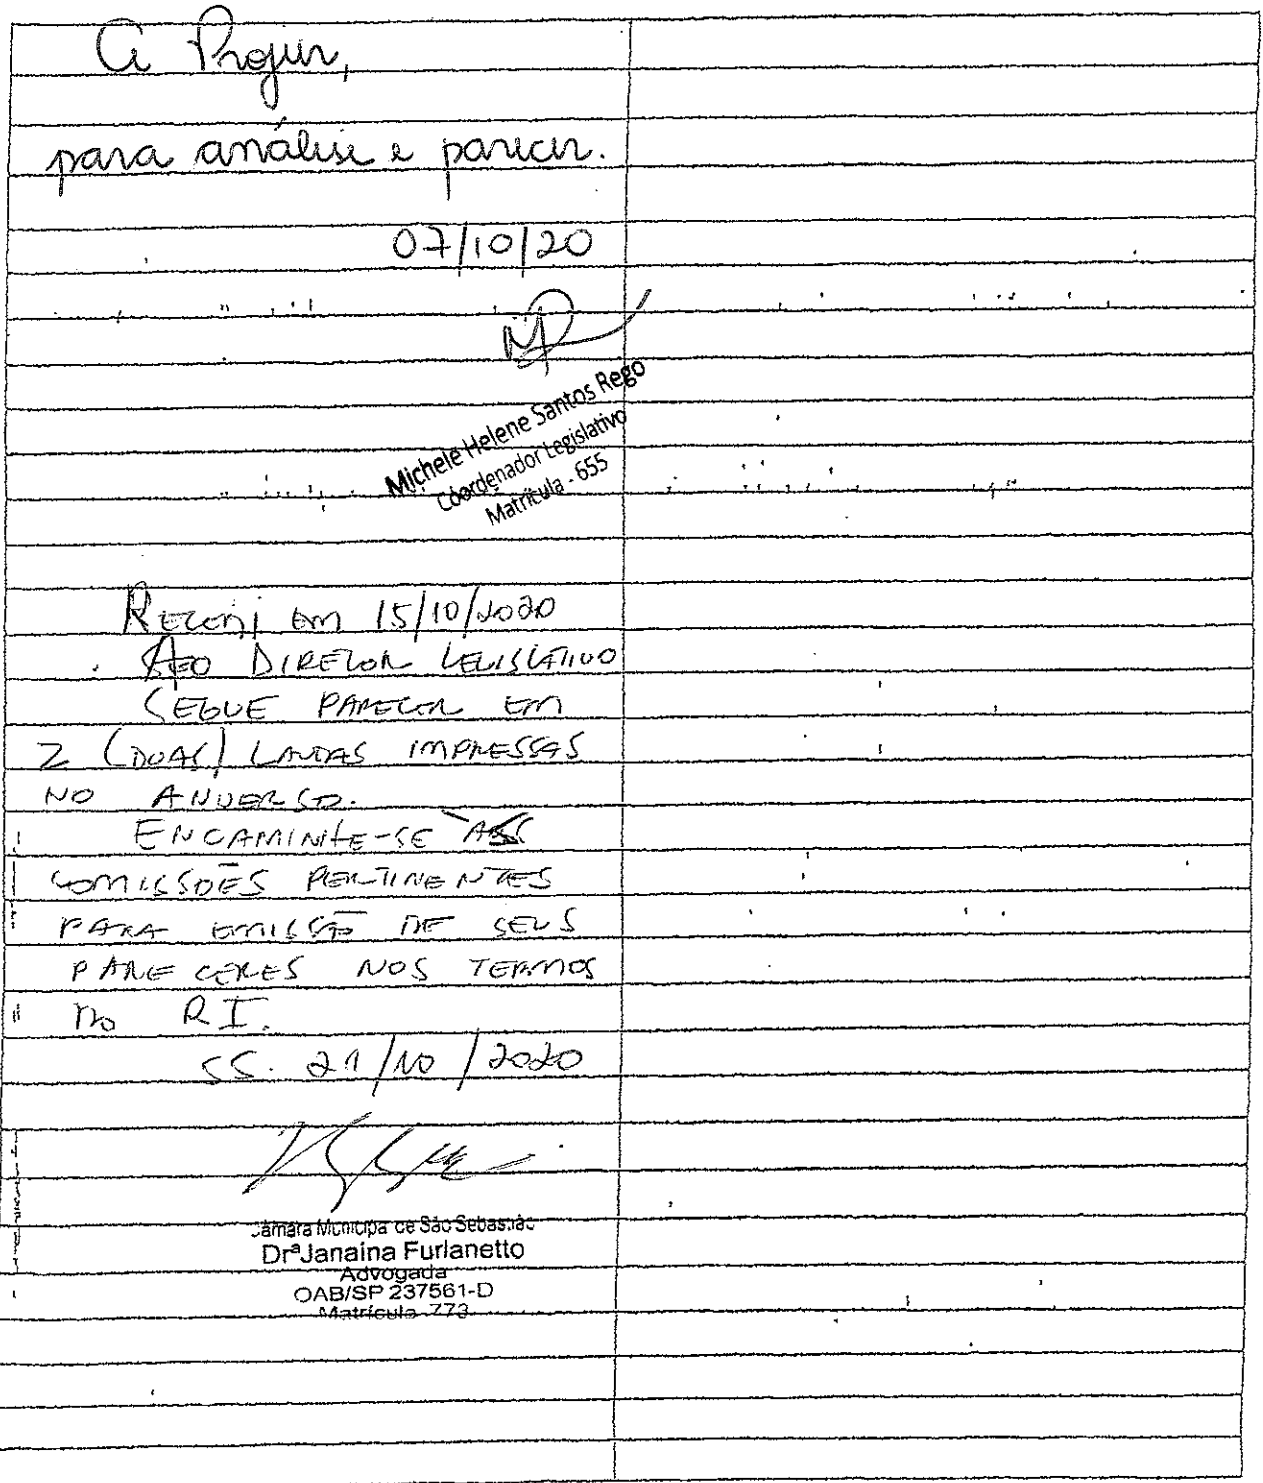 A Projur,
para análise e parecer.
07/10/20
Michele Helene Santos Rego
Coordenador Legislativo
Matrícula - 655
RECEBI EM 15/10/2020
AO DIRETOR LEGISLATIVO
SEGUE PARECER EM
2 (DUAS) LAUDAS IMPRESSAS
NO ANVERSO.
ENCAMINHE-SE ÀS
COMISSÕES PERTINENTES
PARA EMISSÃO DE SEUS
PARECERES NOS TERMOS
DO RI.
SS. 21/10/2020
Câmara Municipal de São Sebastião
Drª Janaina Furlanetto
Advogada
OAB/SP 237561-D
Matrícula 773